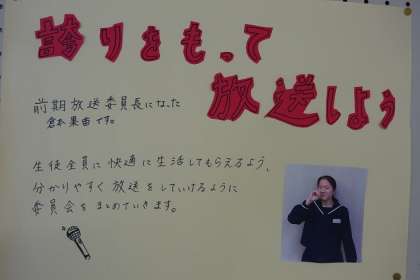 誇りをもって
放送しよう
前期放送委員長になった
倉本果苗です。
生徒全員に快適に生活してもらえるよう、
分かりやすく放送をしていけるように
委員会をまとめていきます。